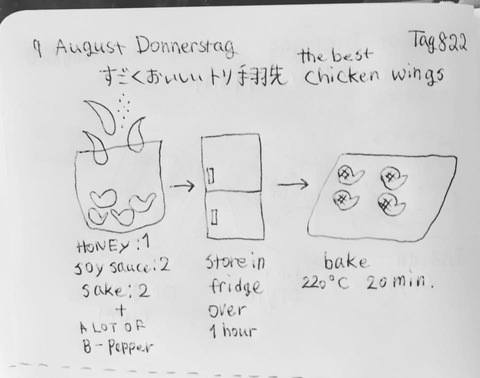 9 August Donnerstag
Tag822
すごくおいしいトリ手羽先
the best
chicken wings
HONEY:1
soy sauce:2
sake:2
+
A LOT OF
B-Pepper
store in
fridge
over
1 hour
bake
220°C 20 min.